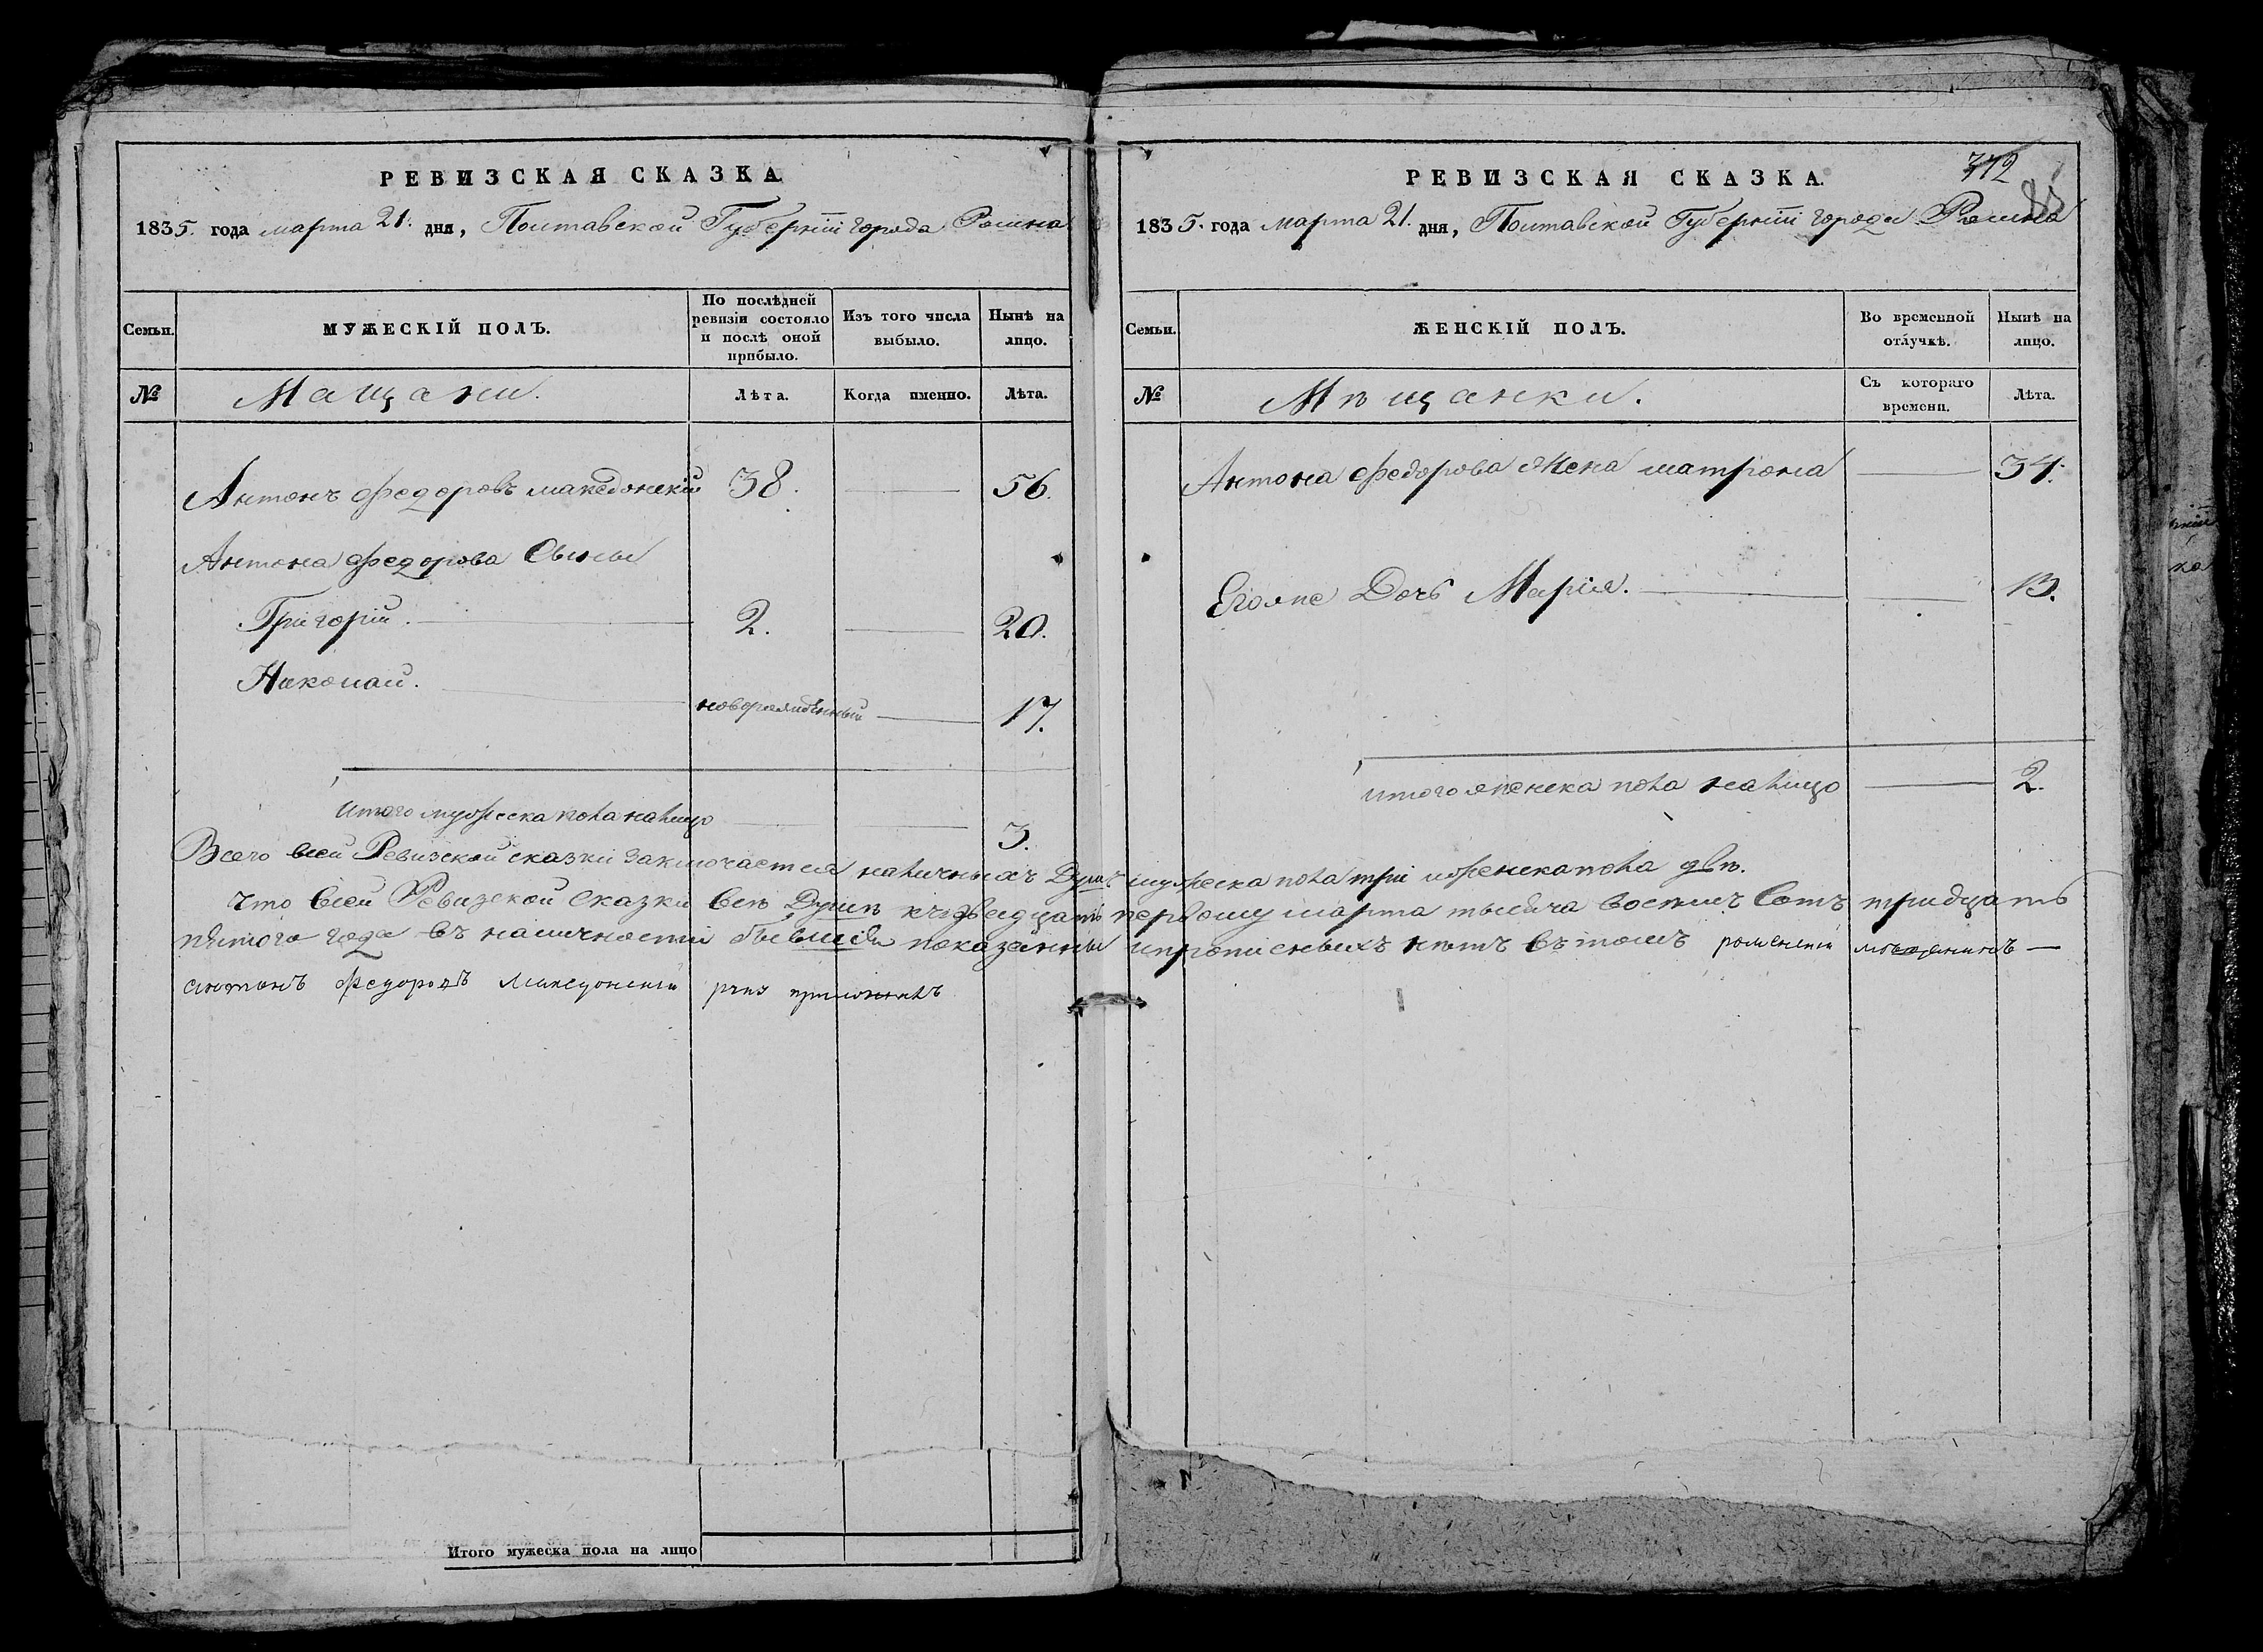 РЕВИЗСКАЯ СКАЗКА
1835. года марта 21. дня, Полтавской Губерніи города Ромна
Семьи.
МУЖЕСКІЙ ПОЛЪ.
По послѣдней ревизіи состояло и послѣ оной прибыло.
Изъ того числа выбыло.
Нынѣ на лицо.
№
Мащани.
Лѣта.
Когда именно.
Лѣта.
Антонъ Федоровъ македонскій 38. 56.
Антона Федорова Сыны
Григорій. 2. 20.
Николай. новорожденный 17.
Итого мужеска пола налицо 3.
РЕВИЗСКАЯ СКАЗКА.
312
1835. года марта 21. дня, Полтавской Губерніи города Ромна
Семьи.
ЖЕНСКІЙ ПОЛЪ.
Во временной отлучкѣ.
Нынѣ на лицо.
№
Мѣщанки.
Съ котораго времени.
Лѣта.
Антона Федорова жена матрона 34.
Егожпе Дочь Марія. 13.
итого женска пола налицо 2.
Всего всей Ревизской сказки заключается наличныхъ Душъ мужеска пола три иженска пола двѣ.
Что всей Ревизской Сказки всѣ Душѣ къ двадцать первому марта тысяча восемъ Сотъ тридцать
пятого года въ наличности бывшія показанны ипрописныхъ нѣтъ въ томъ роменскій мѣщанинъ
антонъ Федоровъ Македонскій руку приложилъ
Итого мужеска пола на лицо